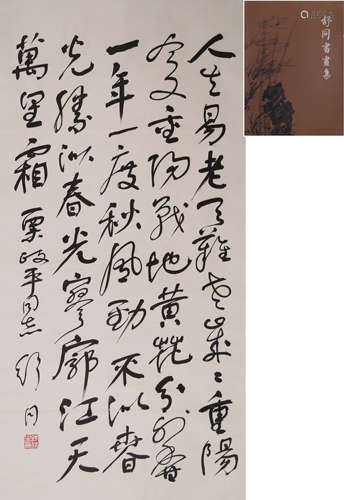 人生易老天難老歲々重陽
今又重陽戰地黃花分外香
一年一度秋風勁不似春
光勝似春光寥廓江天
萬里霜 栗政平同志 舒同
舒同書畫集